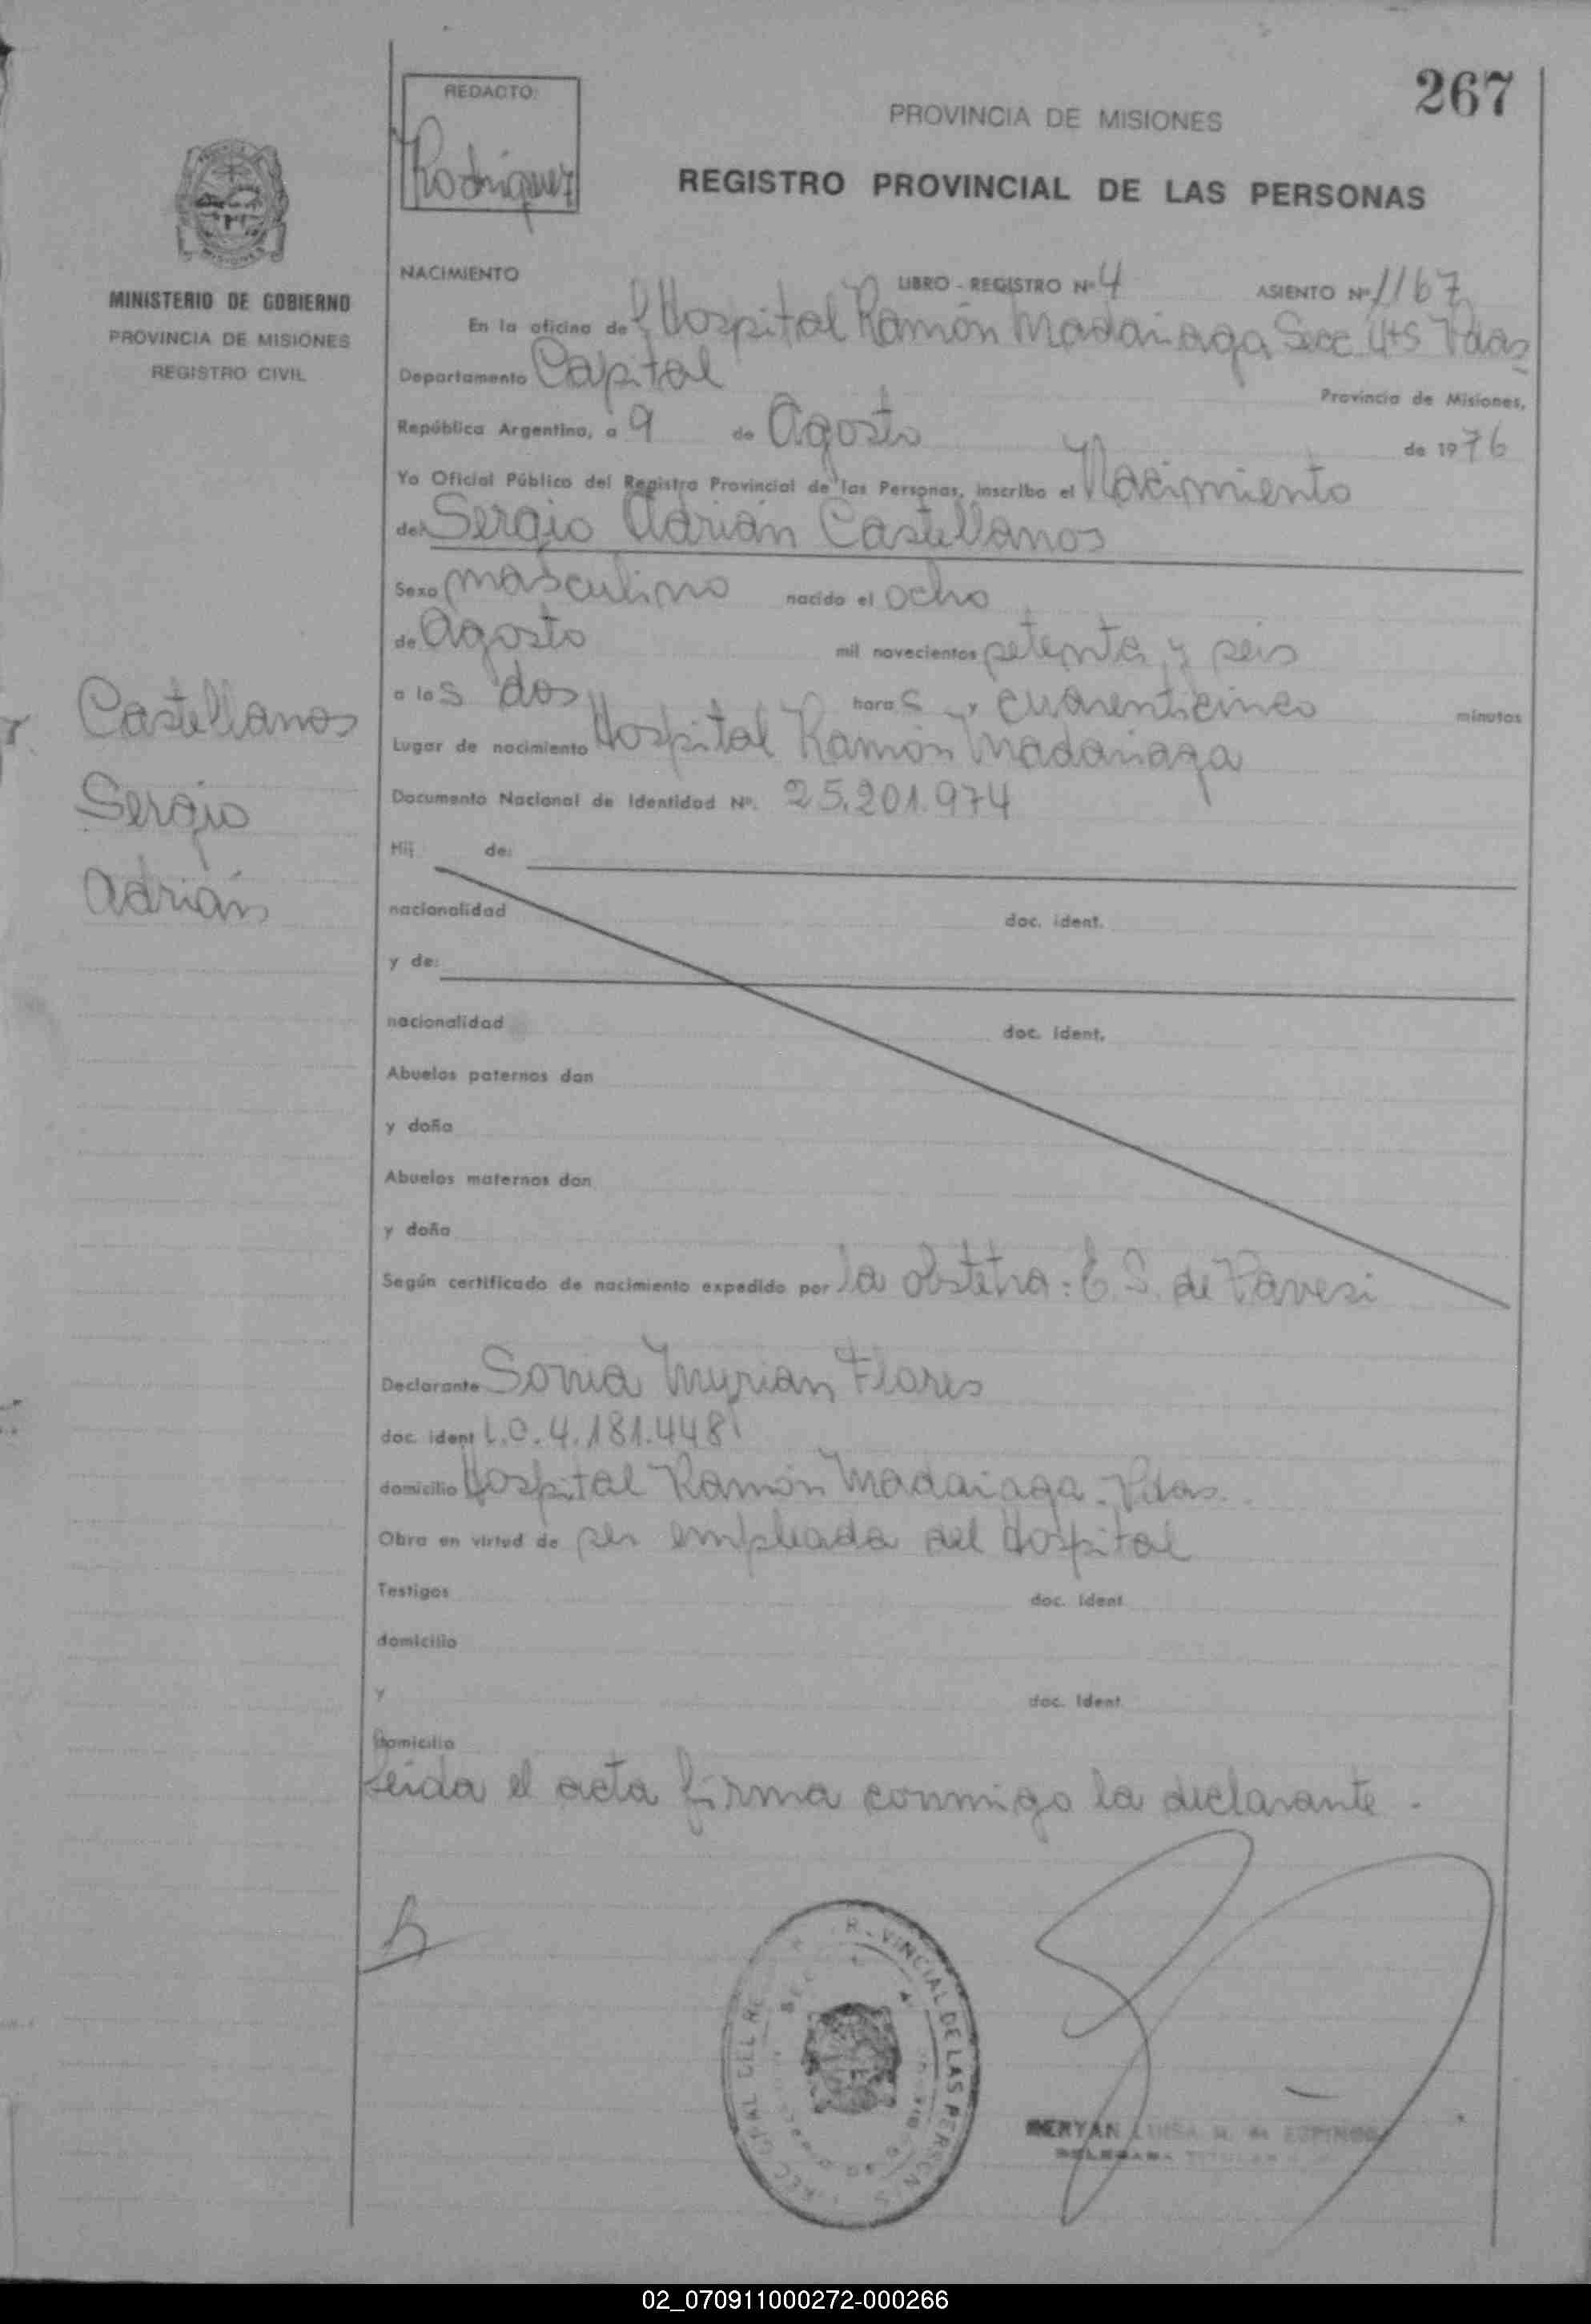 267
REDACTO:
Rodriguez
PROVINCIA DE MISIONES
REGISTRO PROVINCIAL DE LAS PERSONAS
MINISTERIO DE GOBIERNO
PROVINCIA DE MISIONES
REGISTRO CIVIL
NACIMIENTO LIBRO - REGISTRO Nº 4 ASIENTO Nº 1167
En la oficina del Hospital Ramón Madariaga Secc 4ta Pdas
Departamento Capital Provincia de Misiones,
República Argentina, a 9 de Agosto de 1976
Yo Oficial Público del Registro Provincial de las Personas, inscribo el Nacimiento
de: Sergio Adrián Castellanos
Sexo masculino nacido el ocho
de Agosto mil novecientos setenta y seis
a las dos horas y cuarenticinco minutos
Lugar de nacimiento Hospital Ramón Madariaga
Documento Nacional de Identidad Nº. 25.201.974
Castellanos
Sergio
Adrián
Hij de:
nacionalidad doc. ident.
y de:
nacionalidad doc. ident.
Abuelos paternos don
y doña
Abuelos maternos don
y doña
Según certificado de nacimiento expedido por la obstetra: E. S. de Pavesi
Declarante Sonia Myrian Flores
doc. ident L.C. 4.181.448
domicilio Hospital Ramón Madariaga. Pdas.
Obra en virtud de ser empleada del Hospital
Testigos doc. Ident
domicilio
y doc. Ident
Domicilio
Leida el acta firma conmigo la declarante.
VINCIAL DE LAS PERSON S
MERYAN LUISA M. de ESPINOSA
DELEGADA TITULAR
02_070911000272-000266